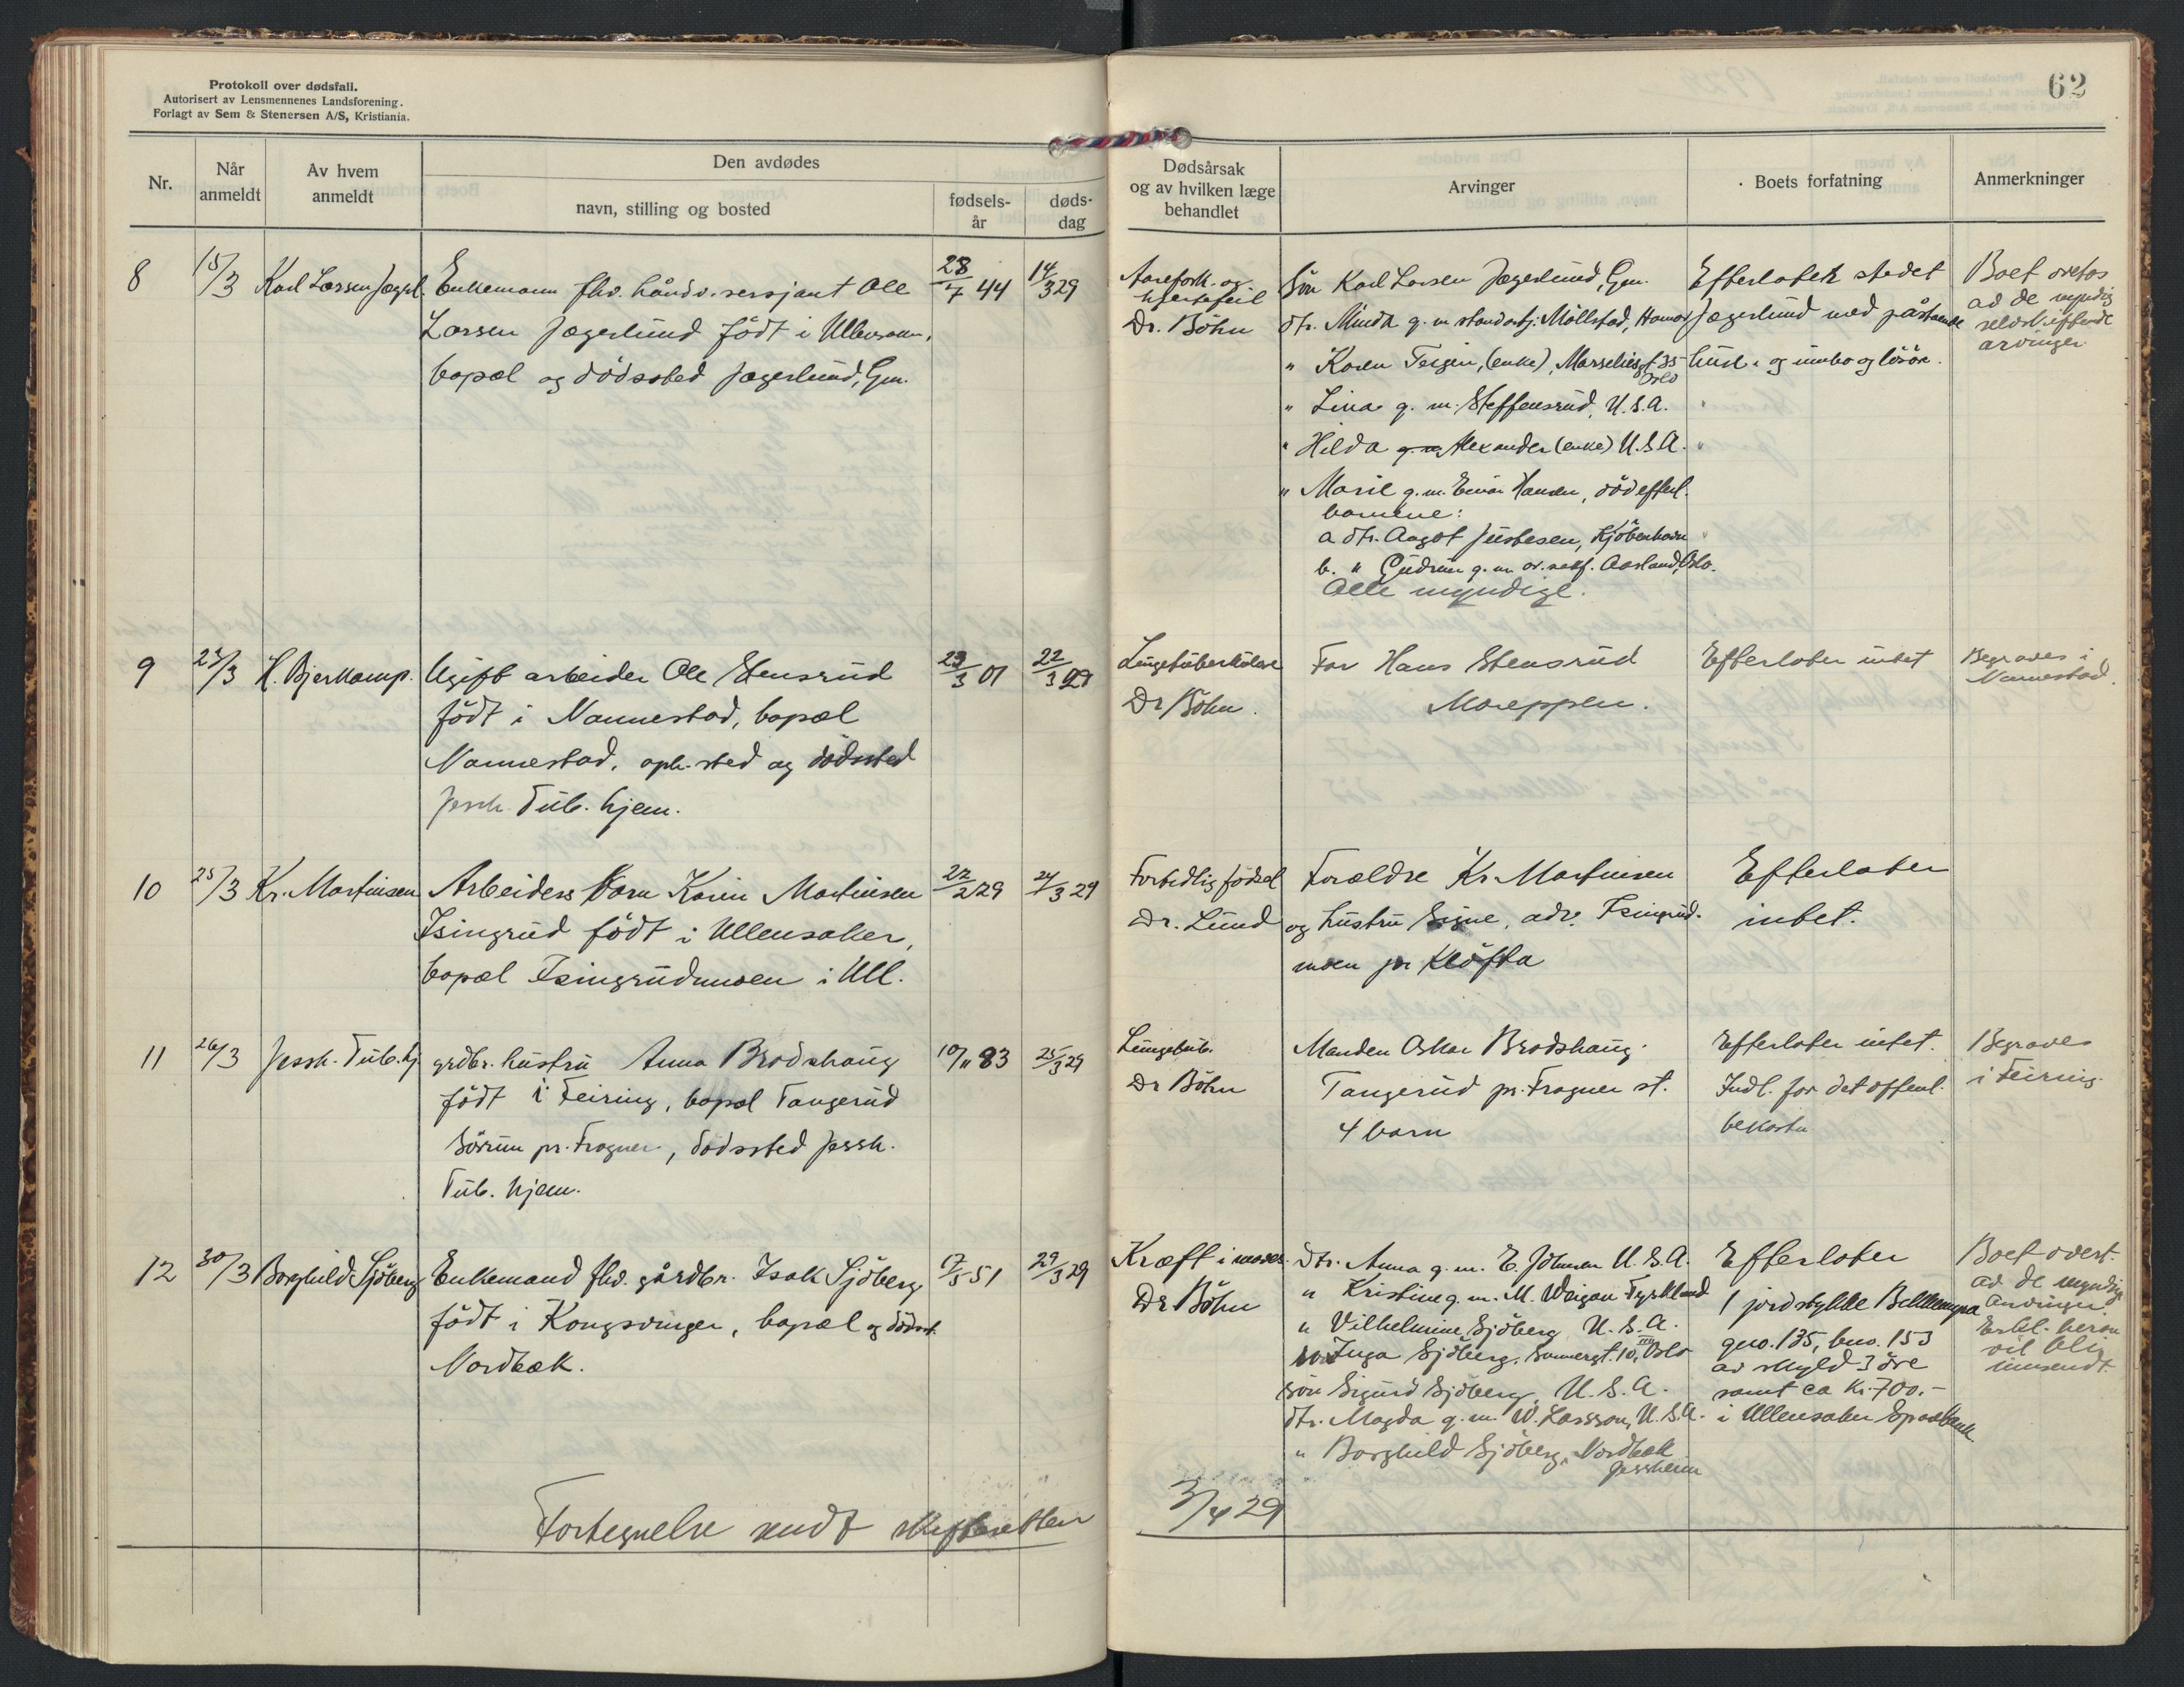 Protokoll over dødsfall.
Autorisert av Lensmennenes Landsforening.
Forlagt av Sem & Stenersen A/S, Kristiania.
62
Nr.
Når anmeldt
Av hvem anmeldt
Den avdødes
navn, stilling og bosted
fødsels-år
døds-dag
Dødsårsak og av hvilken læge behandlet
Arvinger
Boets forfatning
Anmerkninger
8
15/3
Karl Larsen Jægerl.
Enkemann fhv. håndv. sersjant Ole
Larsen Jægerlund født i Ullensaker,
bopæl og dødssted Jægerlund, Gm.
28/7 44
14/3 29
Aarefork. og
hjertefeil
Dr. Böhn
Søn Karl Larsen Jægerlund, Gm.
dtr. Minda g. m Möllstad, Hamar
" Karen Teigen, (enke), Marseliesgt 35
Oslo
" Lina g. m. Steffensrud, U.S.A.
" Hilda g. m. Alexander (enke) U.S.A.
" Marie g. m. Einar Hansen, död efterl.
barnene:
a dtr. Aagot Justesen, Kjöbenhavn
b. " Gudrun g. m. Aasland, Oslo.
Alle myndige.
Efterlater stedet
Jægerlund med påstaaende
huse og innbo og lösöre.
Boet overtas
av de myndig
selvskiftende
arvinger
9
23/3
H. Bjerkamp.
Ugift arbeider Ole Stensrud
födt i Nannestad, bopæl
Nannestad, oph. sted og dödssted
Jessh. Tub. hjem.
23/3 01
22/3 29
Lungetuberkulose
Dr Böhn.
Far Hans Stensrud
Moreppen.
Efterlater intet
Begraves i
Nannestad.
10
25/3
Kr. Martinsen
Arbeiders barn Karin Martinsen
Isingrud födt i Ullensaker,
bopæl Isingrudmoen i Ull.
22/2 29
24/3 29
Fortidlig födsel
Dr. Lund
Forældre Kr. Martinsen
og hustru Signe, adr. Isingrud-
moen pr Klöfta
Efterlater
intet.
11
26/3
Jessh. Tub. hj
grdbr. hustru Anna Brodshaug
födt i Feiring, bopæl Tangerud
Sörum pr. Frogner, dödssted Jessh.
Tub. hjem.
10/11 83
25/3 29
Lungetub.
Dr Böhn
Manden Oskar Brodshaug
Tangerud pr. Frogner st.
4 barn
Efterlater intet.
Indl. for det offentl.
bekostn
Begraves
i Feiring.
12
30/3
Borghild Sjöberg
Enkemand fhv. gårdbr. Isak Sjöberg
födt i Kongsvinger, bopæl og dödsst.
Nordbæk.
17/5 51
29/3 29
Kræft i maven
Dr Böhn
Dtr. Anna g. m. E. Johnsen U.S.A.
" Kristine g. m. M. Weigan Tyskland
" Vilhelmine Sjöberg U.S.A.
" Inga Sjöberg, 10, Oslo
Sön Sigurd Sjöberg, U.S.A.
dtr. Magda g. m. W. Larsson, U.S.A.
" Borghild Sjöberg, Nordbæk
Jessheim
Efterlater
1 jordstykke
gno. 135, bno. 153
av skyld 3 öre
samt ca kr. 700.-
i Ullensaker Sparebank
Boet overt.
av de myndige
Arvinger.
Erkl. herom
vil bli
innsendt.
Fortegnelse sendt skifteretten
3/4 29